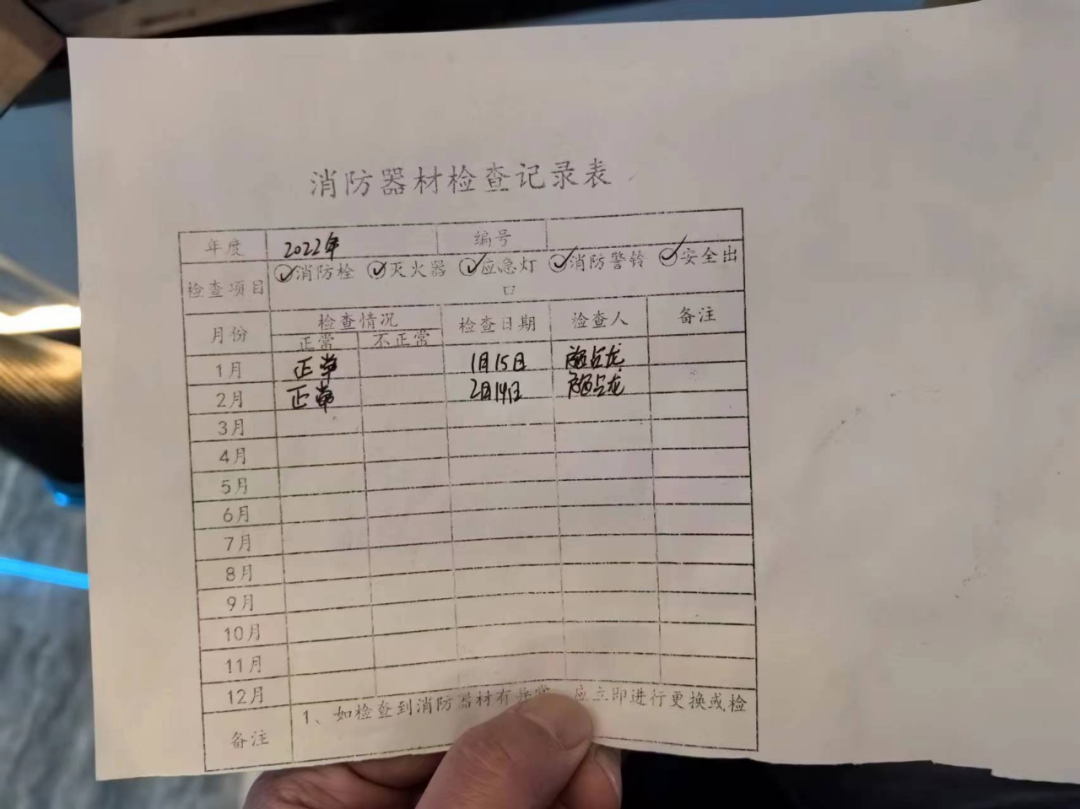 消防器材检查记录表
年度 2022年 编号
检查项目 消防栓 灭火器 应急灯 消防警铃 安全出
口
月份 检查情况 检查日期 检查人 备注
正常 不正常
1月 正常 1月15日 占龙
2月 正常 2月14日 占龙
3月
4月
5月
6月
7月
8月
9月
10月
11月
12月
备注 1、如检查到消防器材有异常 应立即进行更换或检